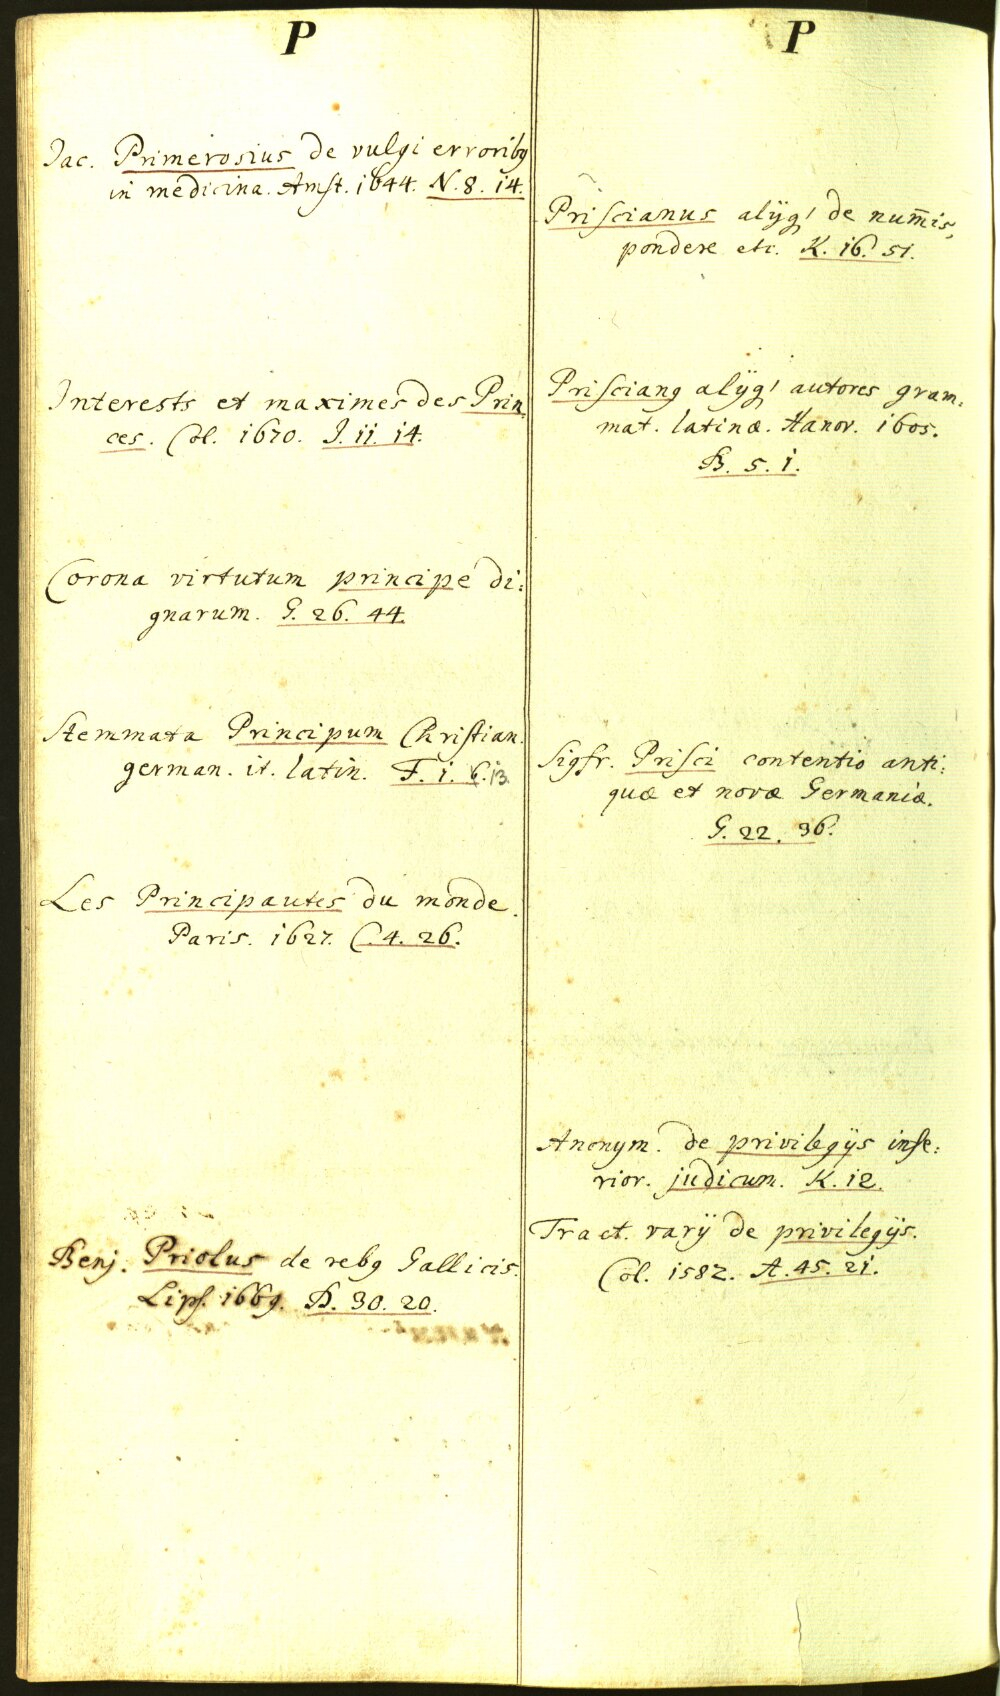 P
Jac. Primerosius de vulgi erroribꝯ
in medicina. Amst. 1644. N. 8. 14.
Interests et maximes des Prin-
ces. Col. 1670. J. 11. 14.
Corona virtutum principe di:
gnarum. G. 26. 44.
Stemmata Principum Christian.
german. it. latin. F. 1. 6. 13.
Les Principautes du monde.
Paris. 1627. C. 4. 26.
Benj. Priolus de rebꝯ Gallicis.
Lips. 1669. B. 30. 20.
P
Priscianus alijqꝫ de num̄is,
pondere etc. K. 16. 51.
Priscianꝯ alijqꝫ autores gram:
mat. latinæ. Hanov. 1605.
B. 5. 1.
Sigfr. Prisci contentio anti:
quæ et novæ Germaniæ.
G. 22. 36.
Anonym. de privilegijs infe:
rior. judicum. K. 12.
Tract. varij de privilegijs.
Col. 1582. A. 45. 21.